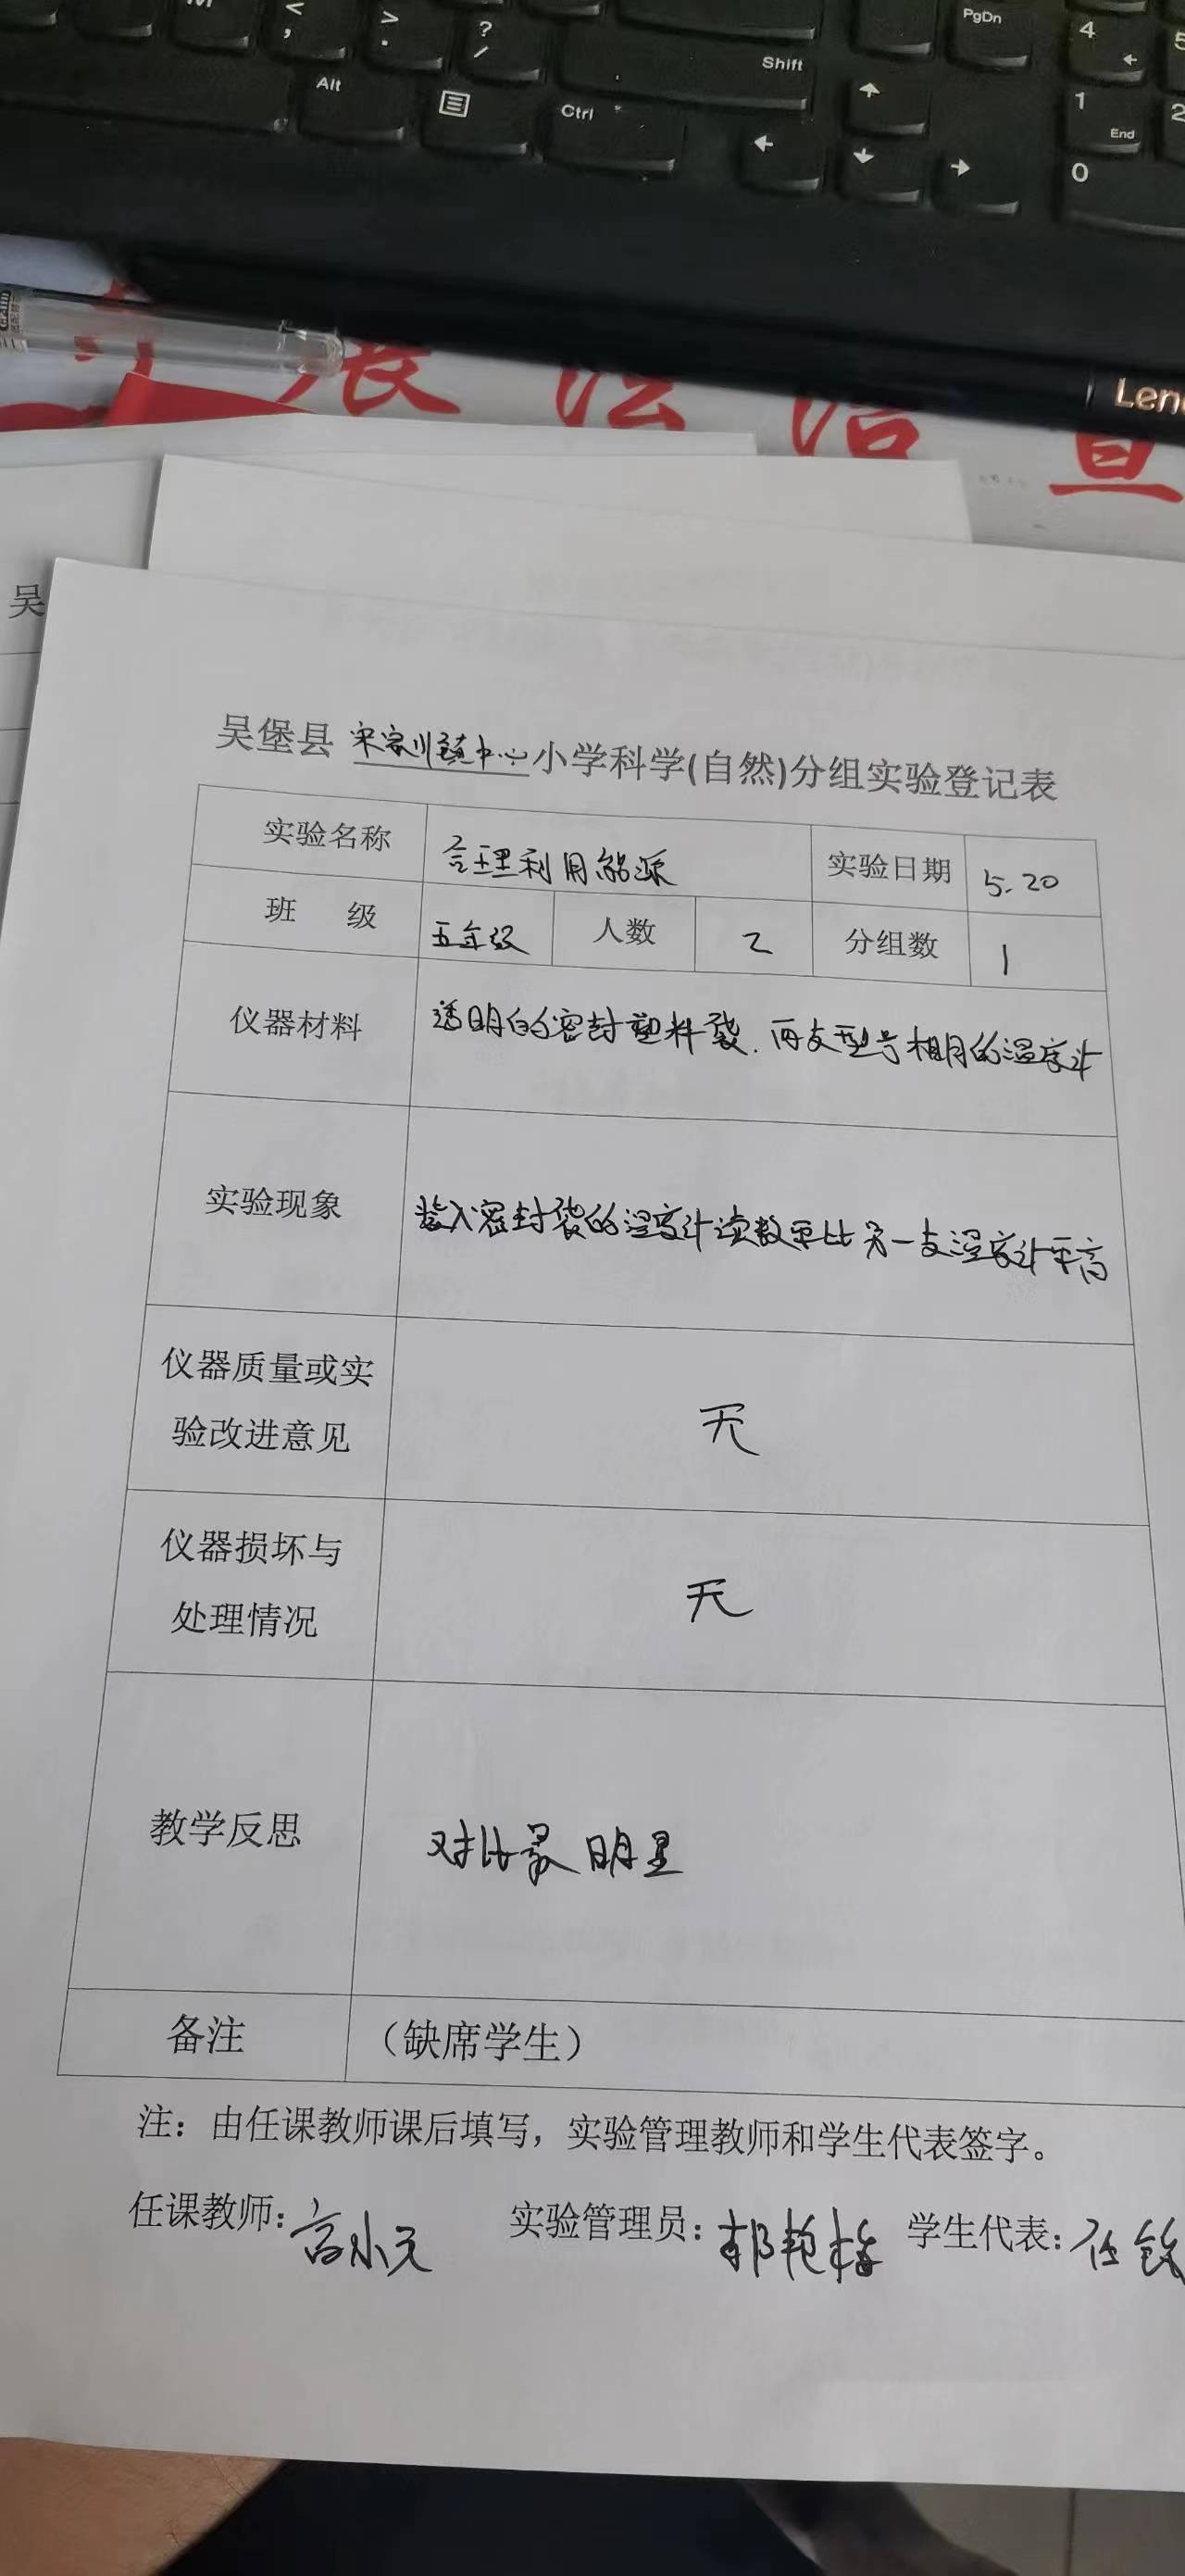 M
<
,
>
.
?
/
Shift
PgDn
4
5
Alt
Ctrl
1
End
2
0
Leno
展 法 治 宣
吴
吴堡县 宋家川镇中心 小学科学(自然)分组实验登记表
实验名称 合理利用能源 实验日期 5.20
班 级 五年级 人数 2 分组数 1
仪器材料 透明的密封塑料袋.两支型号相同的温度计
实验现象 装入密封袋的温度计读数要比另一支温度计要高
仪器质量或实
验改进意见
无
仪器损坏与
处理情况
无
教学反思 对比最明显
备注 （缺席学生）
注：由任课教师课后填写，实验管理教师和学生代表签字。
任课教师：高小元 实验管理员：郭艳梅 学生代表：任